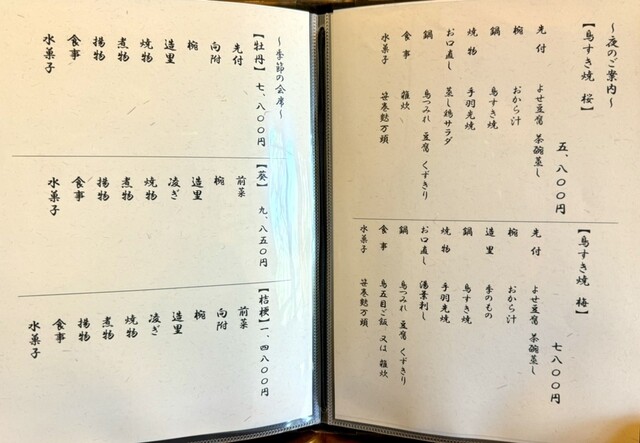 〜夜のご案内〜
【鳥すき焼 桜】
五、八〇〇円
先付 よせ豆腐 茶碗蒸し
椀 おから汁
鍋 鳥すき焼
焼物 手羽先焼
お口直し 蒸し鶏サラダ
鍋 鳥つみれ 豆腐 くずきり
食事 雑炊
水菓子 笹巻麩万頭
【鳥すき焼 梅】
七八〇〇円
先付 よせ豆腐 茶碗蒸し
椀 おから汁
造里 季のもの
鍋 鳥すき焼
焼物 手羽先焼
お口直し 湯葉刺し
鍋 鳥つみれ 豆腐 くずきり
食事 鳥五目ご飯 又は 雑炊
水菓子 笹巻麩万頭
〜季節の会席〜
【牡丹】 七、八〇〇円
先付
向附
椀
造里
焼物
煮物
揚物
食事
水菓子
【葵】 九、八五〇円
前菜
椀
造里
凌ぎ
焼物
煮物
揚物
食事
水菓子
【桔梗】 一、四八〇〇円
前菜
向附
椀
造里
凌ぎ
焼物
煮物
揚物
食事
水菓子